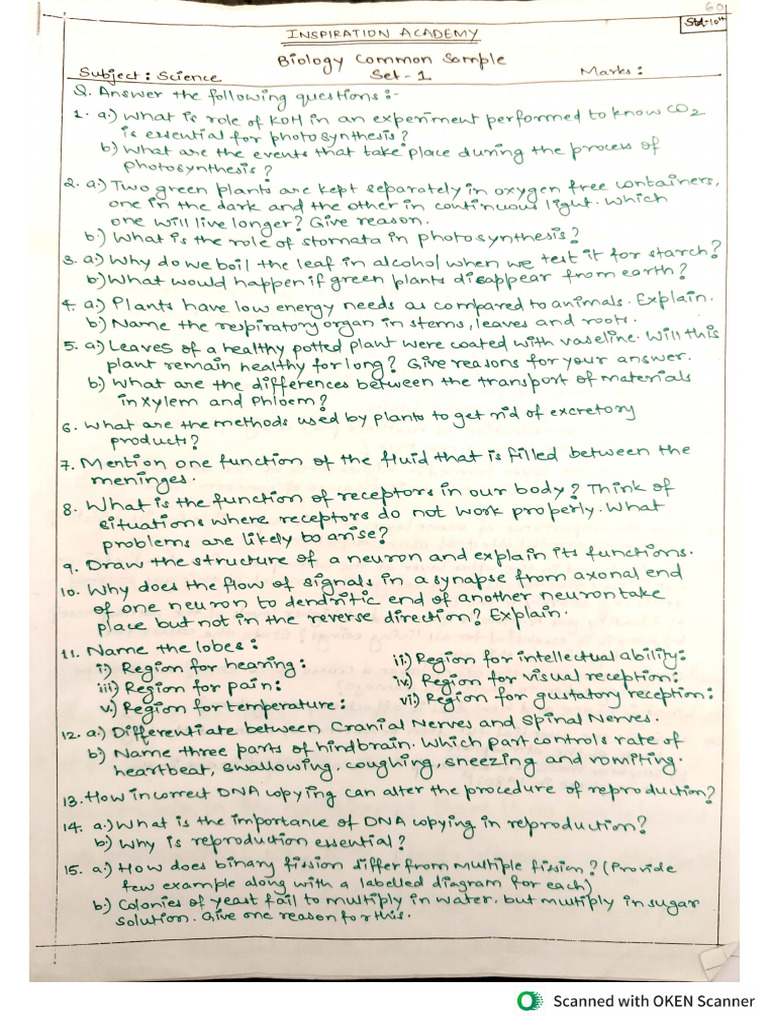 60
Std-10th
INSPIRATION ACADEMY
Biology Common Sample
Subject: Science Set-1 Marks:
Q. Answer the following questions:-
1. a.) What is role of KOH in an experiment performed to know CO2
is essential for photosynthesis?
b) What are the events that take place during the process of
photosynthesis?
2. a.) Two green plants are kept separately in oxygen free containers,
one in the dark and the other in continuous light. Which
one will live longer? Give reason.
b.) What is the role of stomata in photosynthesis?
3. a.) Why do we boil the leaf in alcohol when we test it for starch?
b) What would happen if green plants disappear from earth?
4. a.) Plants have low energy needs as compared to animals. Explain.
b.) Name the respiratory organ in stems, leaves and roots.
5. a.) Leaves of a healthy potted plant were coated with vaseline. Will this
plant remain healthy for long? Give reasons for your answer.
b.) What are the differences between the transport of materials
in Xylem and Phloem?
6. What are the methods used by plants to get rid of excretory
products?
7. Mention one function of the fluid that is filled between the
meninges.
8. What is the function of receptors in our body? Think of
situations where receptors do not work properly. What
problems are likely to arise?
9. Draw the structure of a neuron and explain its functions.
10. Why does the flow of signals in a synapse from axonal end
of one neuron to dendritic end of another neuron take
place but not in the reverse direction? Explain.
11. Name the lobes:
i.) Region for hearing: ii.) Region for intellectual ability:
iii) Region for pain: iv.) Region for visual reception:
v.) Region for temperature: vi.) Region for gustatory reception:
12. a.) Differentiate between Cranial Nerves and Spinal Nerves.
b.) Name three parts of hindbrain. Which part controls rate of
heartbeat, swallowing, coughing, sneezing and vomiting.
13. How incorrect DNA copying can alter the procedure of reproduction?
14. a.) What is the importance of DNA copying in reproduction?
b.) Why is reproduction essential?
15. a.) How does binary fission differ from multiple fission? (Provide
few example along with a labelled diagram for each)
b.) Colonies of yeast fail to multiply in water, but multiply in sugar
solution. Give one reason for this.
Scanned with OKEN Scanner